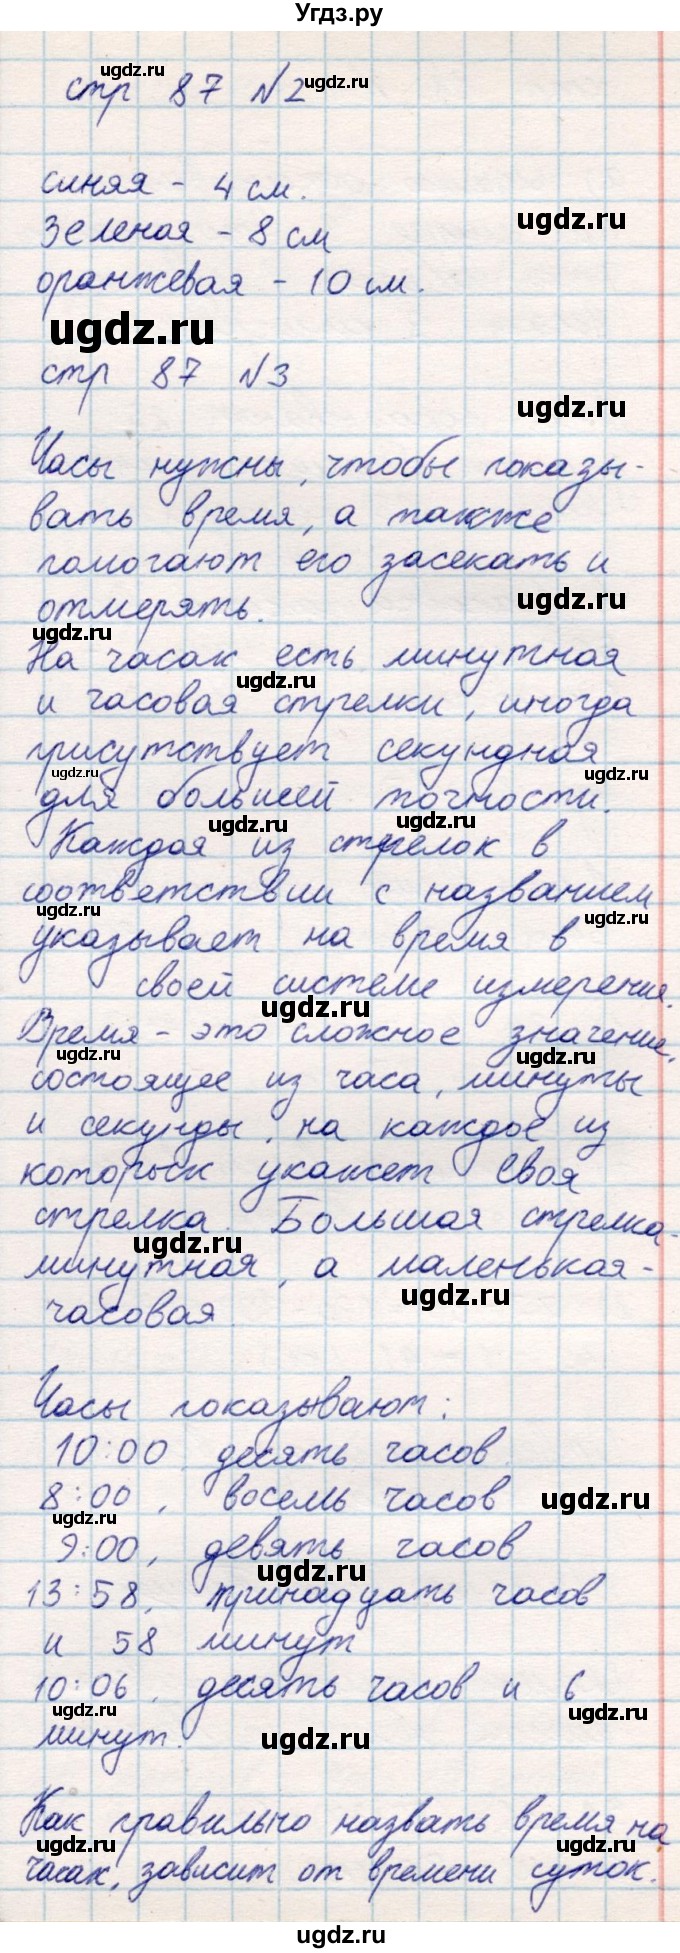 Угдз.ру
стр 87 №2
синяя - 4 см.
зеленая - 8 см
оранжевая - 10 см.
стр 87 №3
Часы нужны, чтобы показы-
вать время, а также
помогают его засекать и
отмерять.
На часах есть минутная
и часовая стрелки, иногда
присутствует секундная
для большей точности.
Каждая из стрелок в
соответствии с названием
указывает на время в
своей системе измерения.
Время - это сложное значение,
состоящее из часа, минуты
и секунды, на каждое из
которых укажет своя
стрелка. Большая стрелка-
минутная, а маленькая-
часовая.
Часы показывают:
10:00, десять часов.
8:00, восемь часов
9:00, девять часов
13:58, тринадцать часов
и 58 минут
10:06, десять часов и 6
минут.
Как правильно назвать время на
часах, зависит от времени суток.
ugdz.ru